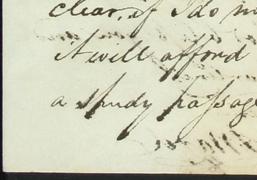 clear, if I do
it will afford
a study passag